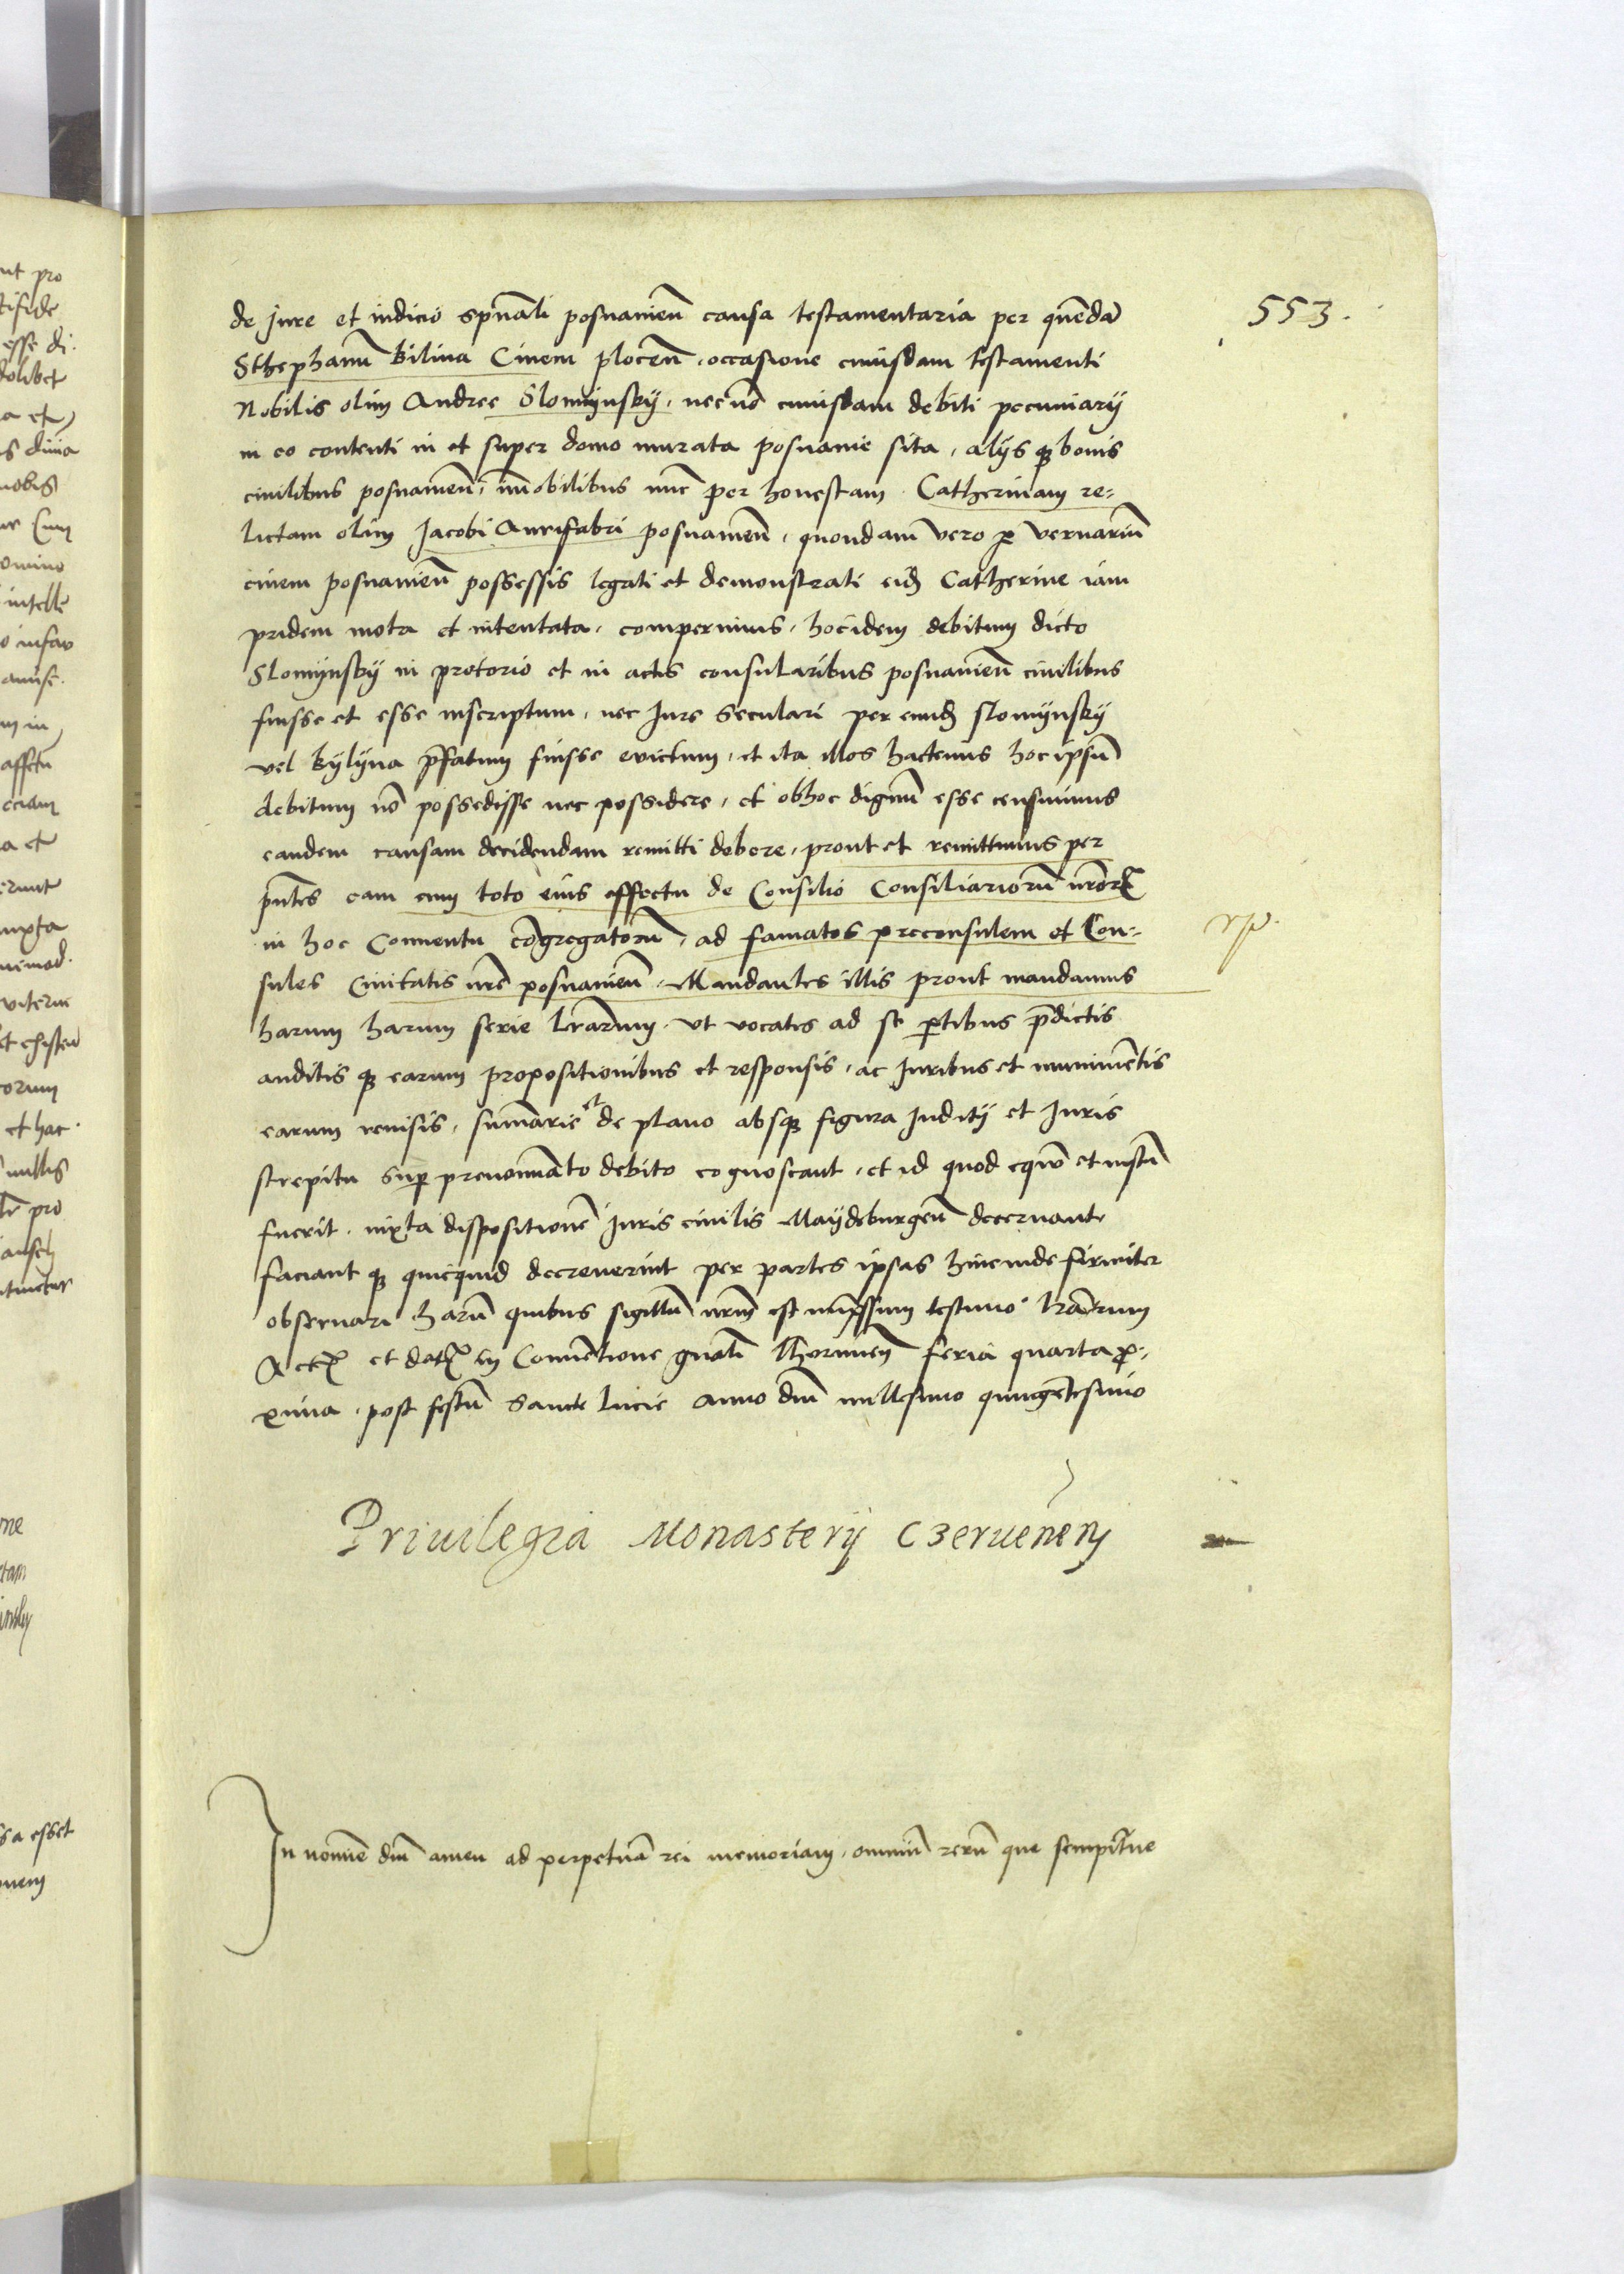 553.
de jure et iudicio spūali posnanieñ causa testamentaria per quēdā
Sthephanū Bilina Ciuem ploceñ, occasione cuiusdam testamenti
Nobilis olim Andree Slomijnsky, necnō cuiusdam debiti pecuniarij
in eo contenti in et super domo murata posnanie sita, alijs qȝ bonis
ciuilibus posnanieñ, im̄obilibus nūc per honestam Catherinam re-
lictam olim Jacobi Aurifabri posnanieñ, quondam vero p vernariū
ciuem posnanieñ possessis legati et demonstrati eid Catherine iam
pridem mota et intentata, comperimus, hocidem debitum dicto
Slomijnsky in pretorio et in actis consularibus posnanieñ ciuilibus
fuisse et esse inscriptum, nec Jure seculari per eund slomijnsky
vel kylyna p̄fatum fuisse euictum, et ita illos hactenus hoc ipsū
debitum nō possedisse nec possidere, et obhoc dignū esse censuimus
eandem causam decidendam remitti debere, prout et remittimus per
p̄ntes eam cum toto eius effectu de Consilio Consiliariorū nr̄orꝝ
in hoc Conuentu cōgregatorū, ad famatos preconsulem et Con-
sules Ciuitatis nr̄e posnanieñ, Mandantes illis prout mandamus
harum harum serie lr̄arum, vt vocatis ad se ptibus p̄dictis
auditis qȝ earum propositionibus et responsis, ac Juribus et munimētis
earum reuisis, sum̄arie et de plano absqȝ figura Juditij et Juris
strepitu sup prenomīato debito cognoscant, et id quod equū et iustū
fuerit, iuxta dispositionē Juris ciuilis Maydeburgeñ decernant
faciant qȝ quicquid decreuerint per partes ipsas hincinde firmiter
obseruari harū quibus sigillū nr̄m est imp̄ssum testimo lr̄arum
Actꝝ et datꝝ in Conuētione gn̄ali Thorunieñ feria quarta pro-
xima post festū Sancte Lucie anno dn̄i millesimo quingētesimo
Priuilegia Monasterij Czerueneñ
In nomīe dn̄i amen ad perpetuā rei memoriam, omniū rerū que sempit̄ne